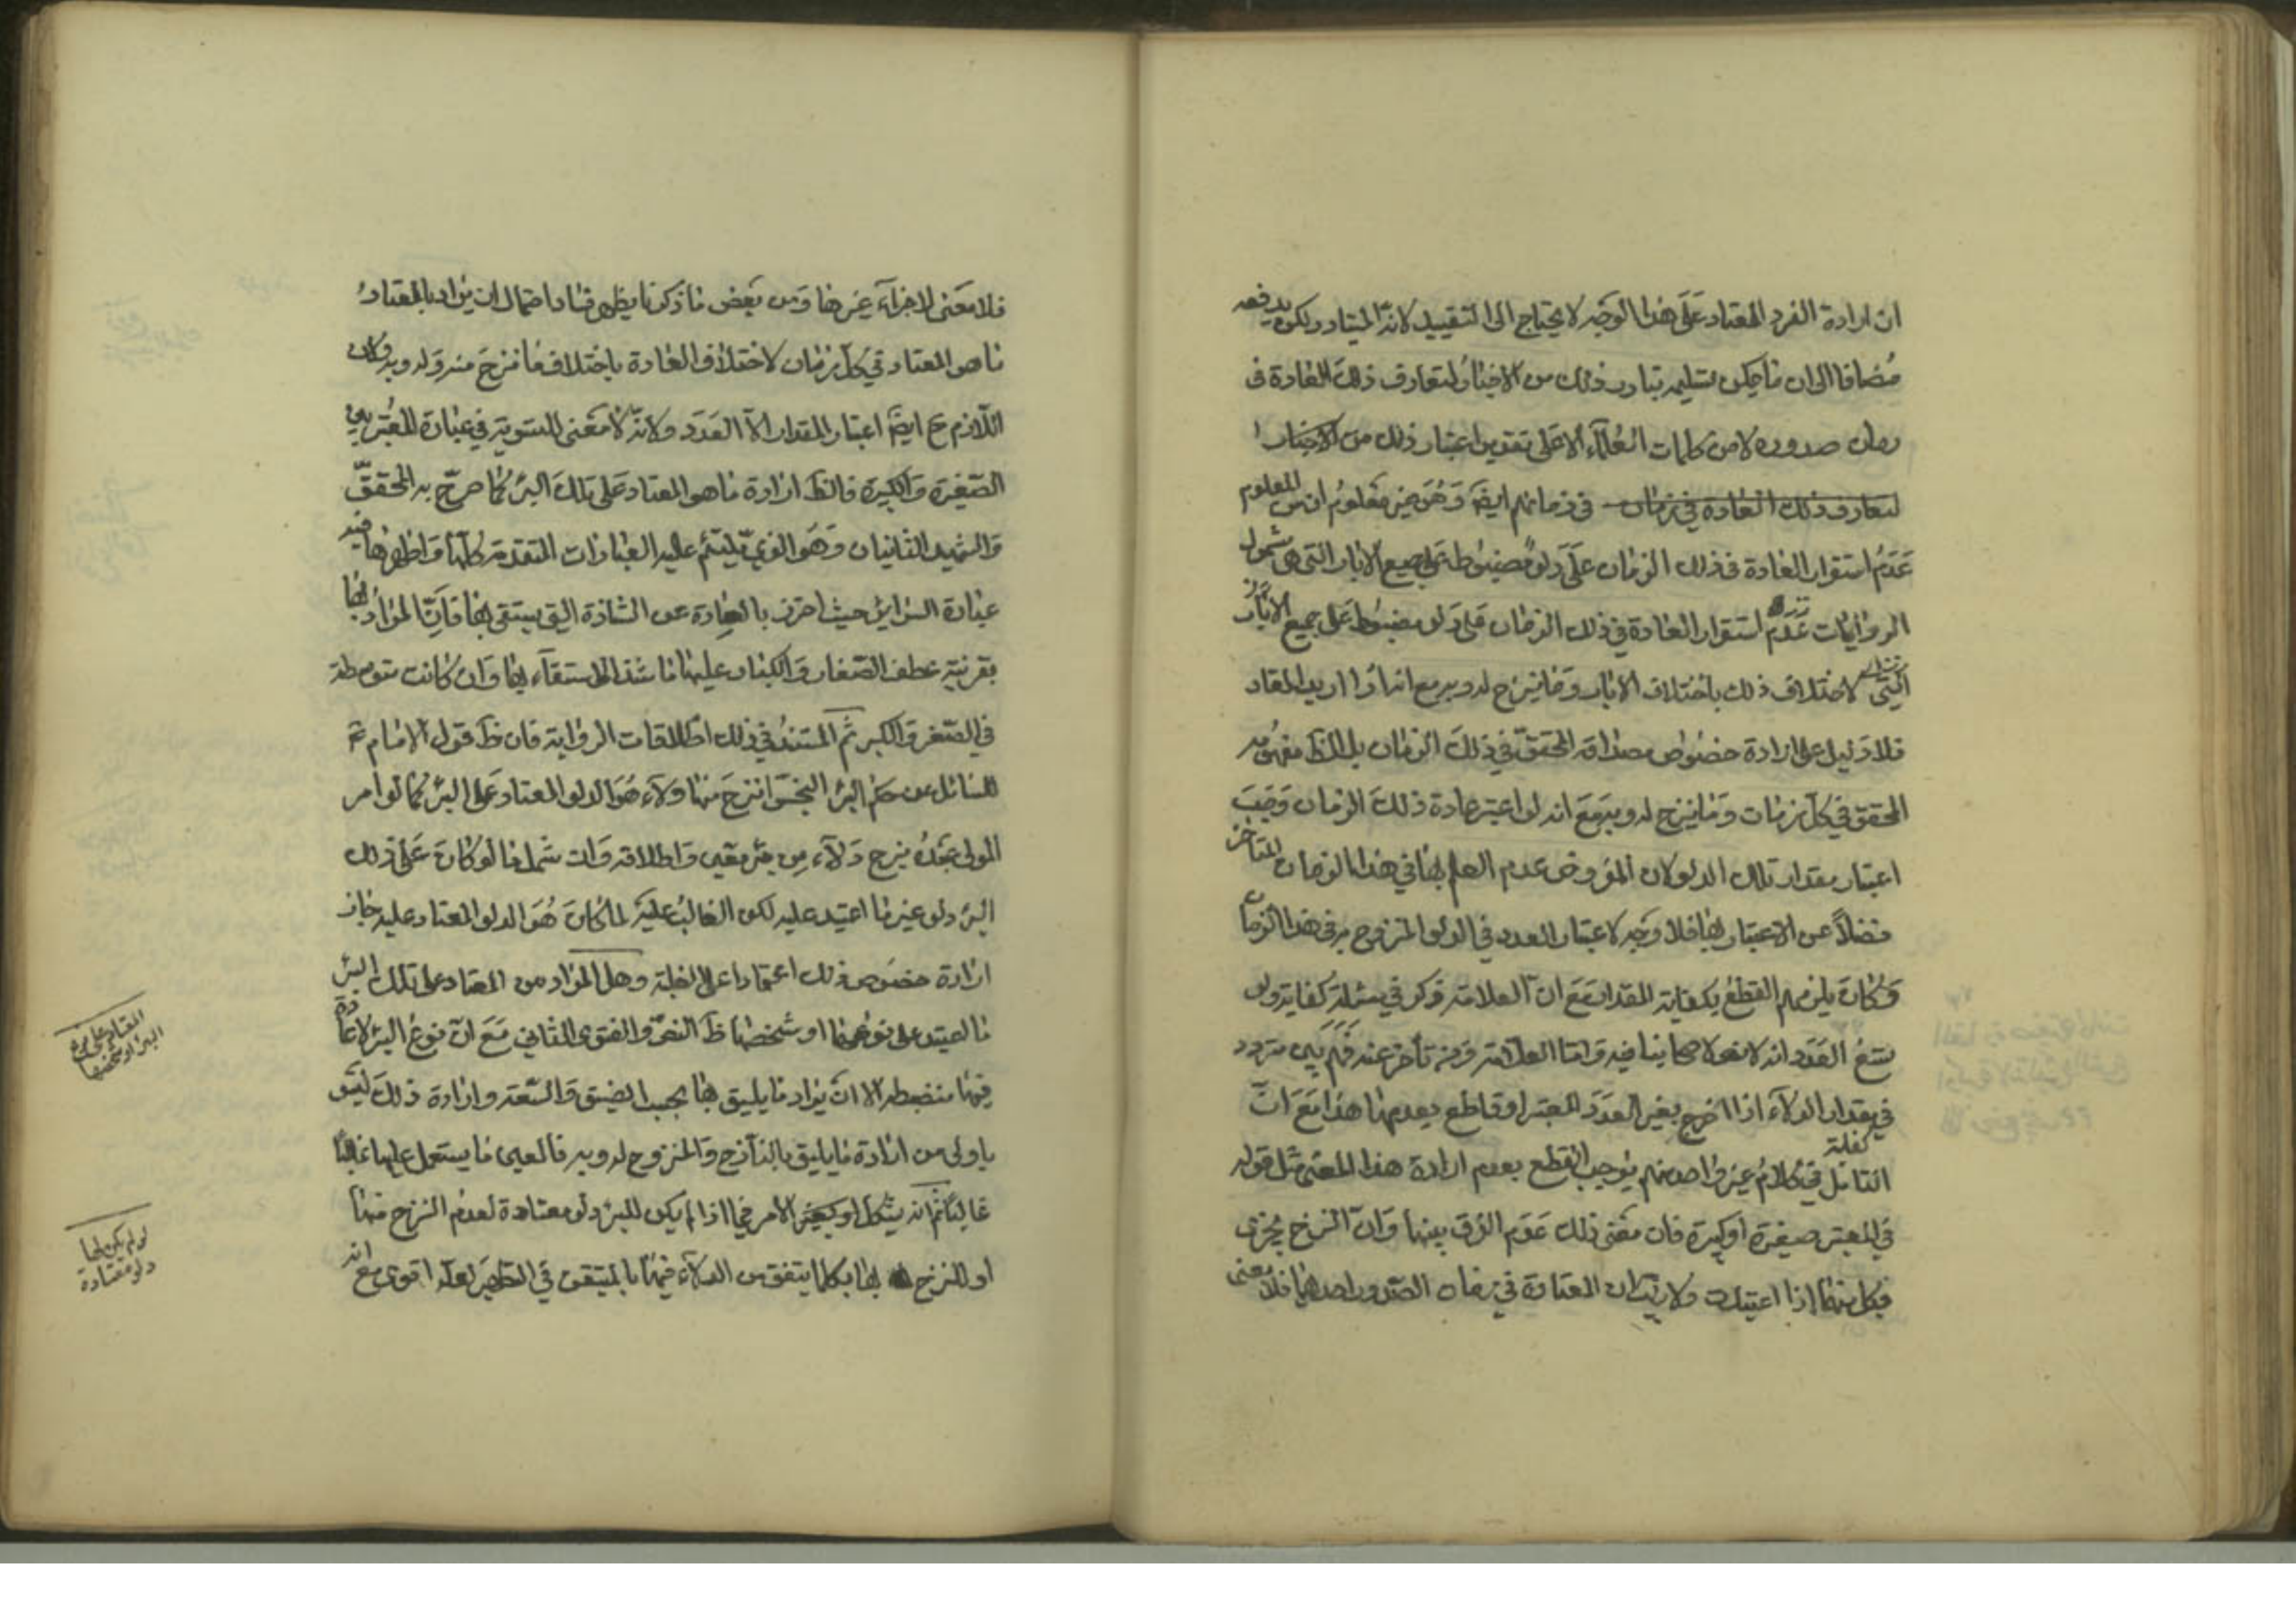 ان ارادة الفرد المعتاد على هذا الوجه لا يحتاج الى التقييد لانه المتبادر ولكن يدفعه
مضافا الى ان ما يمكن تسليمه تبادر ذلك من الاخبار لتعارف ذلك العادة في
زمان صدوره لا من كلمات العلماء الا على تقدير اعتبار ذلك من الاخبار
لتعارف ذلك العادة في زمان في زمانهم ايضا وهو غير معلوم المعلوم
عدم استقرار العادة في ذلك الزمان على دلو مضبوطة على جميع الابار التي هي شمول
الروايات عدم استقرار العادة في ذلك الزمان على دلو مضبوط على جميع الابار
التي لاختلاف ذلك باختلاف الابار وما ينزح له وبه مع انه اذا اريد المعتاد
فلا دليل على ارادة خصوص مصداقه المحقق في ذلك الزمان بل الظ مفهومه
المحقق في كل زمان وما ينزح له وبه مع انه لو اعتبر عادة ذلك الزمان وجب
اعتبار مقدار تلك الدلو لان المفروض عدم العلم بها في هذا الزمان المتاخر
فضلا عن الاعتبار بها فلا وجه لاعتبار العدد في الدلو المنزوح به في هذا الزمان
وكان يلزمهم القطع بكفاية المقدار مع ان العلامة ذكر في مسئلة كفاية دلو
تسع العدد انه لا نص لاصحابنا فيه واما العلامة ومن تأخر عنه فهم بين متردد
في مقدار الدلاء اذا اخرج بغير العدد المعتبر او قاطع بعدمها هذا مع ان
التامل في كلام غير واحد منهم يوجب القطع بعدم ارادة هذا المعنى مثل قوله
في المعتبر صغيرة او كبيرة فان معنى ذلك عدم الفرق بينهما وان النزح يجزي
فيكل منهما اذا اعتيدت ولا ريب ان المعتادة في زمان الصدور احدهما فلا معنى
فلا معنى لاجزاء غيرها ومن بعض ما ذكرنا يظهر فساد احتمال ان يراد بالمعتاد
ما هو المعتاد في كل زمان لاختلاف العادة باختلاف ما ينزح منه وله وبه وكان
اللازم ح ايضا اعتبار المقدار الا العدد ولانه لا معنى للتسوية في عبارة المعتبر بين
الصغيرة والكبيرة فالظ ارادة ما هو المعتاد على تلك البئر كما صرح به المحقق
والشهيد الثانيان وهو الذي يلتئم عليه العبارات المتقدمة كلها واظهرها فيه
عبارة السرائر حيث احترز بالعادة عن الشاذة التي يستقى بها فان المراد بها
بقرينة عطف الصغار والكبار عليها ما شذ الاستقاء بها وان كانت متوسطة
في الصغر والكبر ثم المستند في ذلك اطلاقات الرواية فان ظ قول الامام ع
للسائل عن حكم البئر النجس انزح منها دلاء هو الدلو المعتاد على البئر كما لو امر
المولى عبده بنزح دلاء من بئر معين واطلاقه وان شمل ما لو كان على ذلك
البئر دلو غير ما اعتيد عليه لكن الغالب عليه لما كان هو الدلو المعتاد عليه جاز
ارادة خصوص ذلك اعتمادا على الغلبة وهل المراد من المعتاد على تلك البئر
ما اعتيد على نوعها او شخصها ظ النص والفتوى الثاني مع ان نوع البئر لا عادة
فيها منضبطة الا ان يراد ما يليق بها بحسب الضيق والسعة وارادة ذلك ليس
باولى من ارادة ما يليق بالنازح والمنزوح له وبه فالعبرة ما يستعمل عليها غالبا
غالبا ثم انه يشكل الامر فيما اذا لم يكن للبئر دلو معتادة لعدم النزح منها
او للنزح بها بكلما يتفق من الدلاء فيها بالمتيقن في التطهير لعله اقوى مع انه
المعتاد على نوع
البئر او شخصها
لو لم يكن لها
دلو معتادة